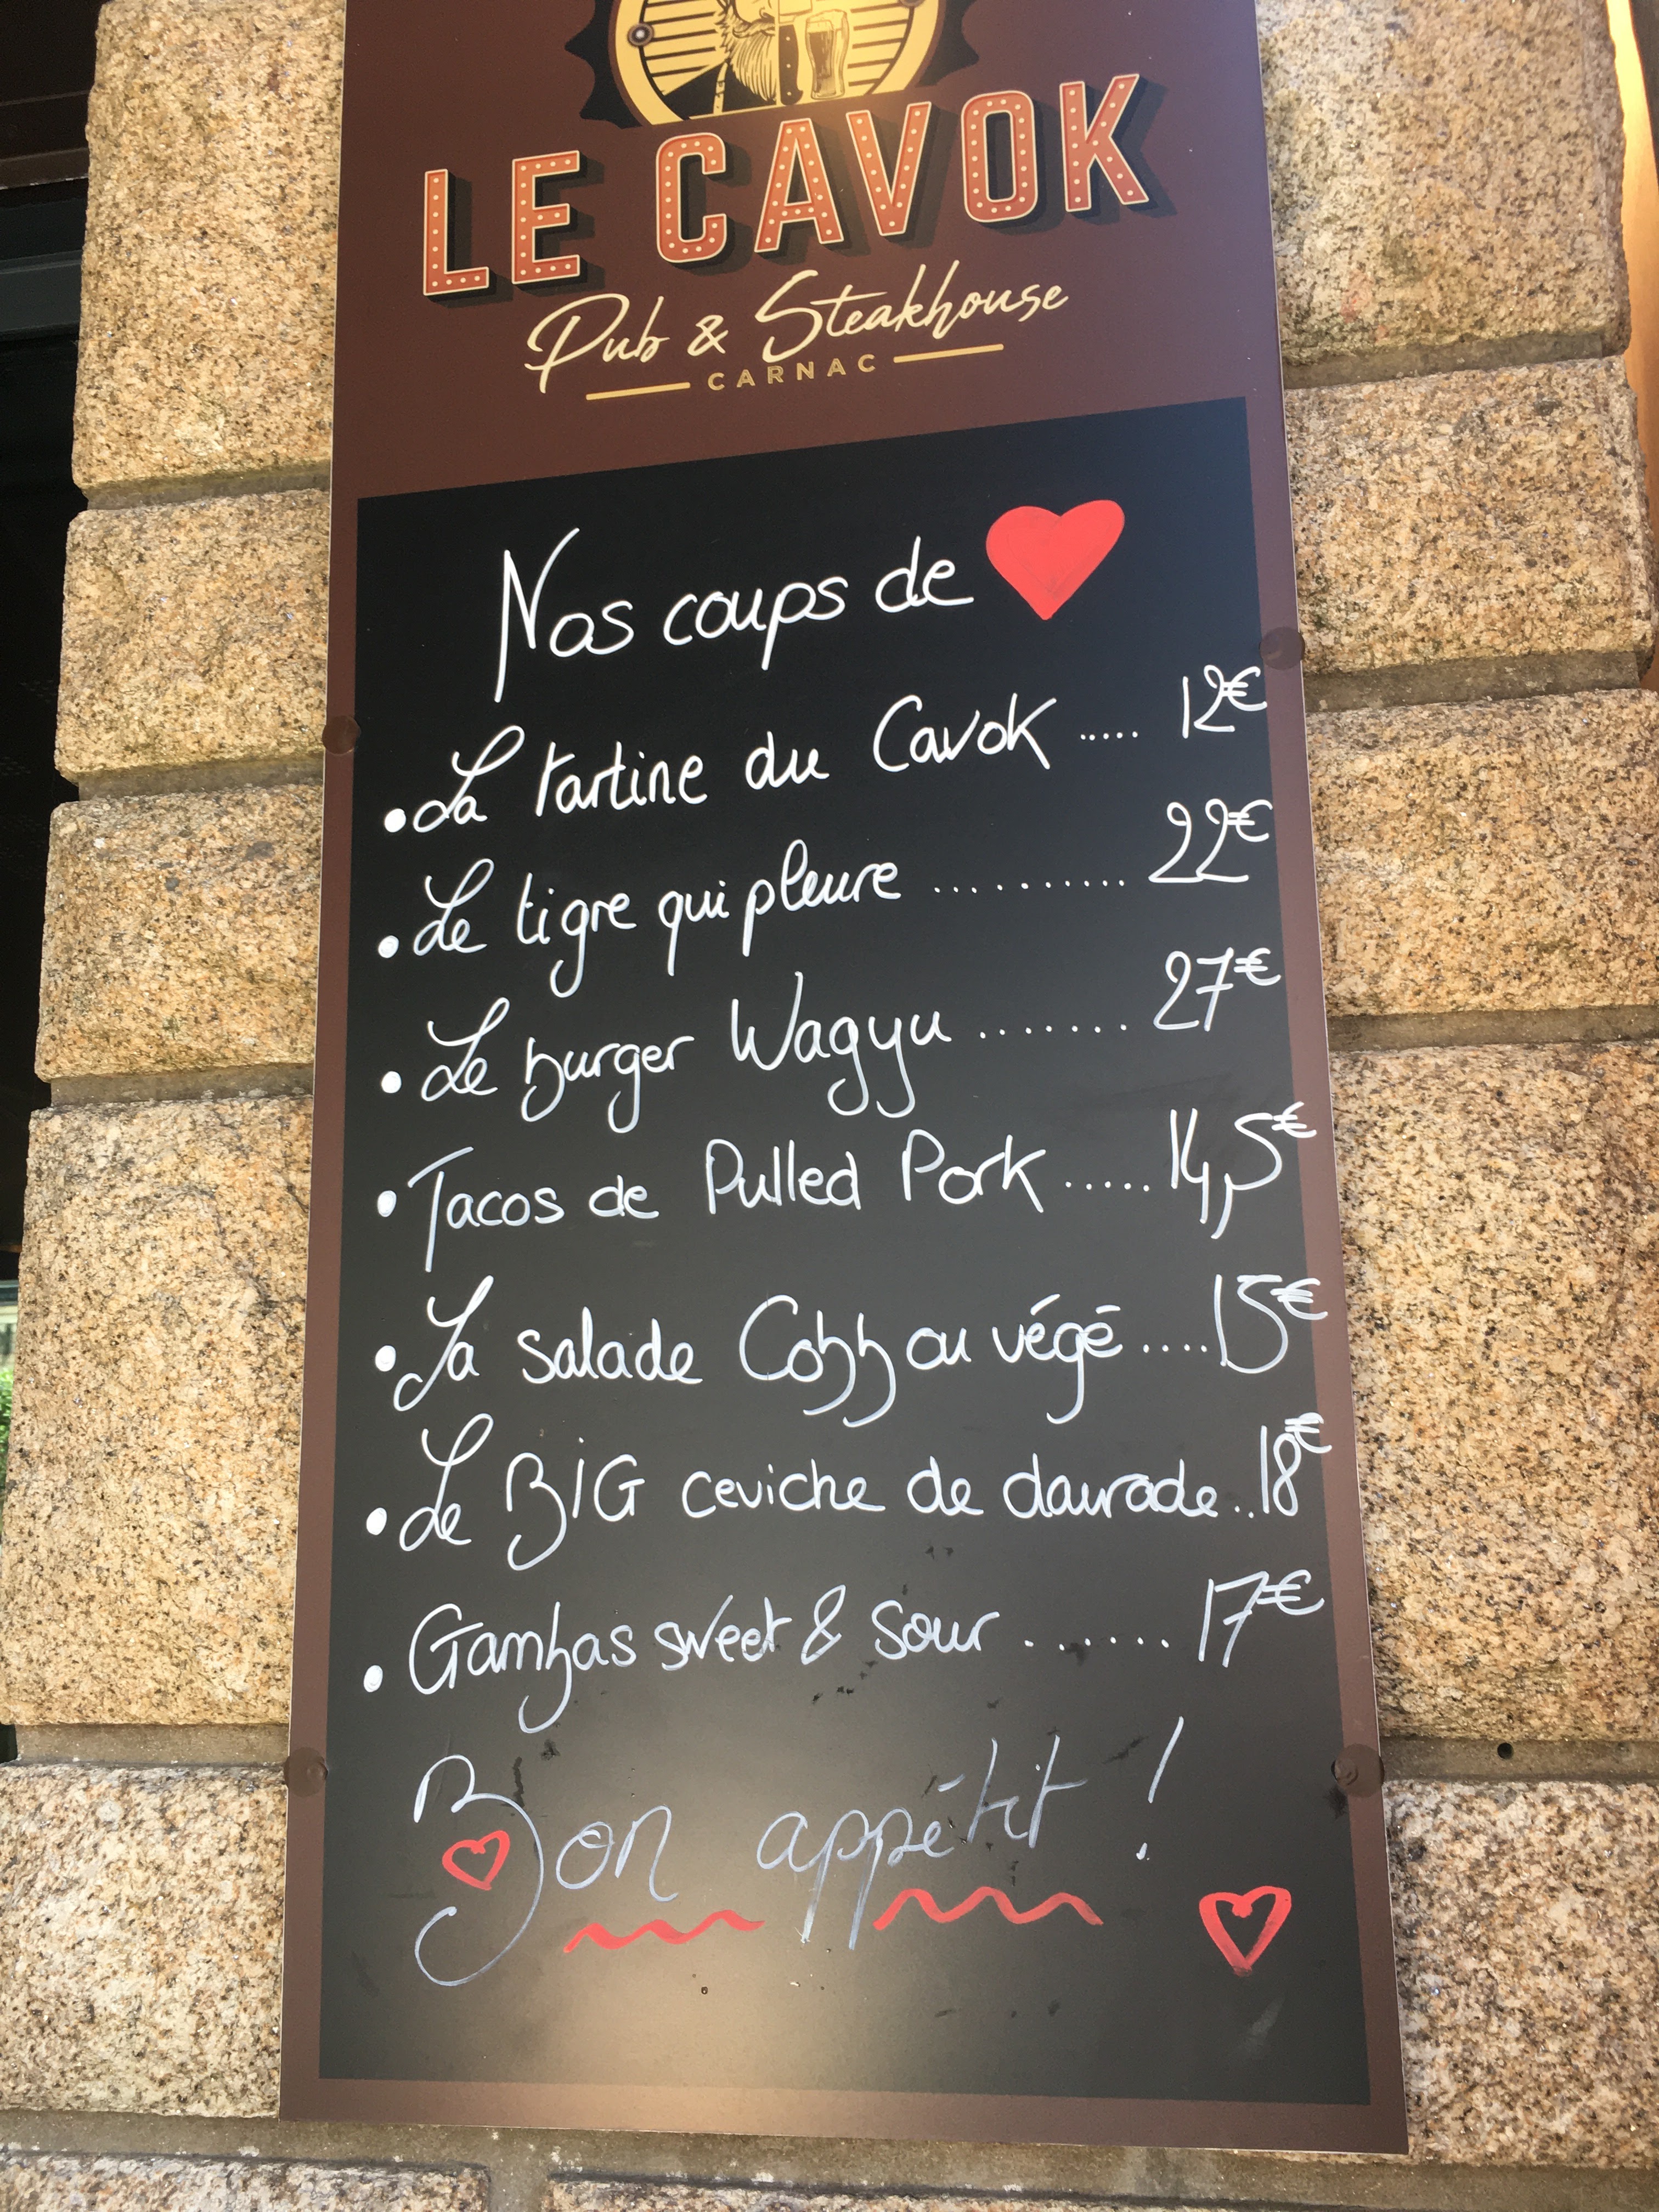 LE CAVOK
Pub & Steakhouse
CARNAC
Nos coups de ❤
• La tartine du Cavok ..... 12€
• Le tigre qui pleure ........... 22€
• Le burger Wagyu ....... 27€
• Tacos de Pulled Pork ..... 14,5€
• La salade Cobb ou végé .... 15€
• Le BIG ceviche de daurade .. 18€
• Gambas sweet & sour ....... 17€
Bon appétit !